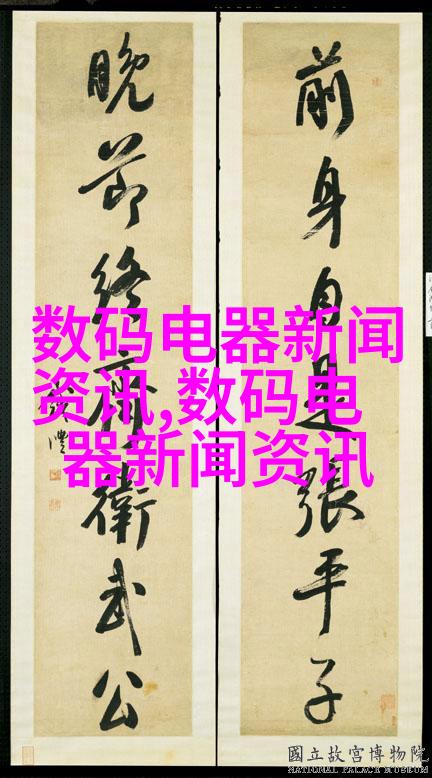 前身自是張平子
晚節終齊衛武公
数码电器新闻
资讯,数码电
器新闻资讯
國立故宮博物院
NATIONAL PALACE MUSEUM